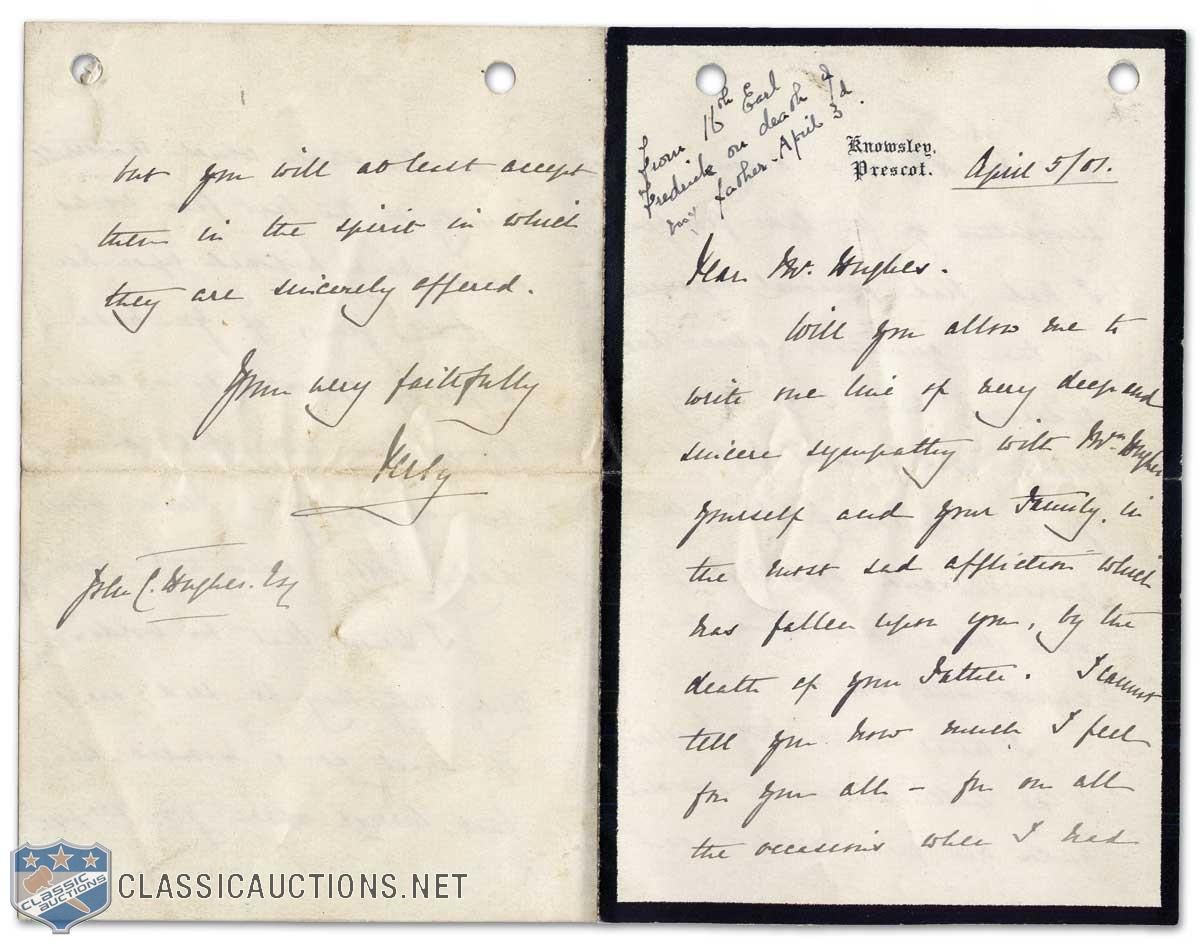 From 16th Earl
Frederick on death of
my father - April 3rd.
Knowsley,
Prescot.
April 5/01.
Dear Mr. Hughes.
Will you allow me to
write one line of very deep and
sincere sympathy with Mrs Hughes
yourself and your Family, in
the most sad affliction which
has fallen upon you, by the
death of your Father. I cannot
tell you how much I feel
for you all - for on all
the occasions when I had
but you will at least accept
them in the spirit in which
they are sincerely offered.
Yours very faithfully
Derby
John C. Hughes. Esq
CLASSIC AUCTIONS
CLASSICAUCTIONS.NET